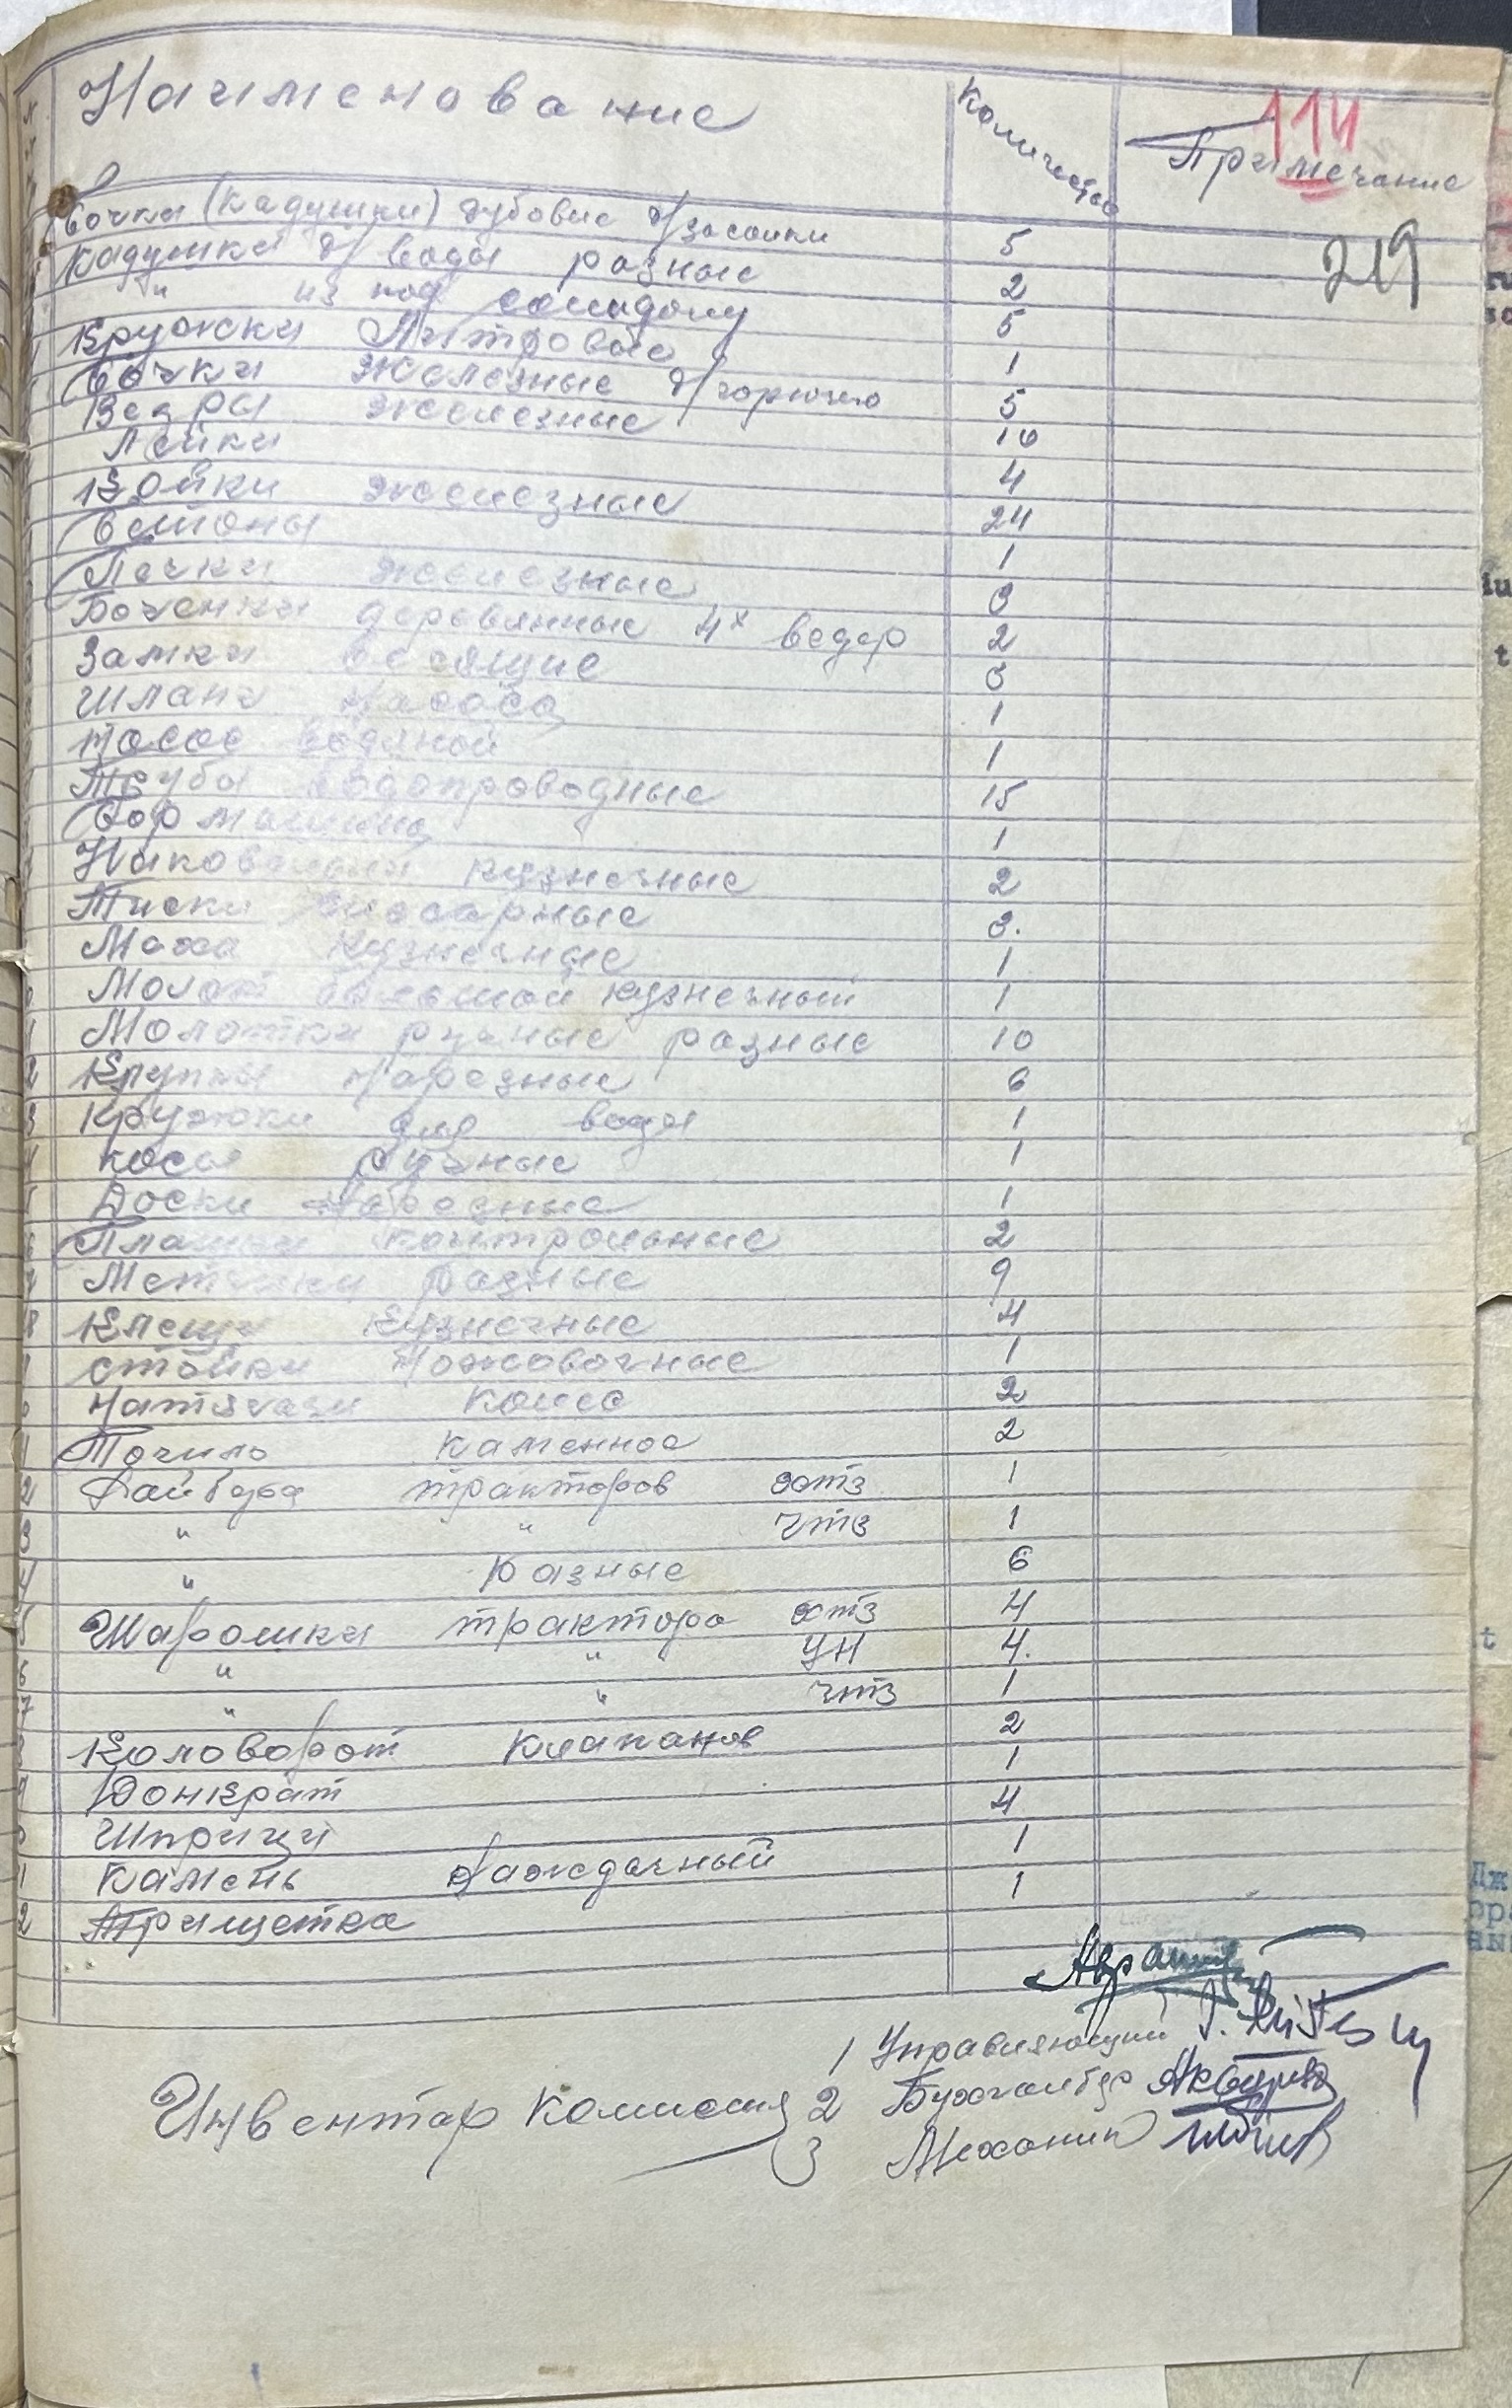 Наименование Количество Примечание
114
219
Бочки (кадушки) дубовые д/засолки 5
Кадушки д/воды разные 2
" из под солидолу 5
Кружски Литровые 1
Бочки железные д/горючего 5
Ведры железные 10
Лейки 4
Войки железные 24
Бетоны 1
Печки железные 3
Боченки деревянные 4х ведер 2
Замки весящие 3
Шланг насоса 1
Насос водяной 1
Трубы водопроводные 15
Бор машина 1
Наковальни кузнечные 2
Тиски слесарные 3.
Меха кузнечные 1
Молот большой кузнечный 1
Молотки ручные разные 10
Круппы нарезные 6
Кружки для воды 1
косы ручные 1
Доски нарезные 1
Плашки контрольные 2
Метчики разные 9
Клещи кузнечные 4
стойки Ножовочные 1
Натягачи колес 2
Точило каменное 2
Райбера тракторов хтз 1
" " чтз 1
" Разные 6
Шарошки трактора хтз 4
" " УН 4.
" " чтз 1
Коловорот клапанов 2
Донкрат 1
Шприцы 4
Камень наждачный 1
Трищетка 1
Инвентар комиссия
1 Управляющий
2 Бухгалтер
3 Механик